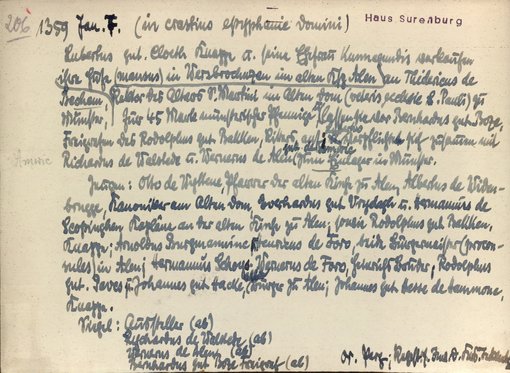 206 1359 Jan. 7. (in crastino epyphanie domini) Haus Surenburg
Lubertus gnt. Cloeth Knappe u. seine Ehefrau Kunnegundis verkaufen
ihre Hufe (mansus) in Wersbrochagen im alten Ksp. Alen an Thidericus de
Bechem, Rektor des Altars S. Martini im Alten Dom (veteris ecclesie S. Pauli) zu
Münster, für 45 Mark münsterischer Pfennige. Auflassung vor Bernhardus gnt. Boze,
Freigrafen des Rodolphus gnt. Balken, Ritters, verpflichtet sich zusammen mit
Amric Richardus de Walstede u. Wernerus de Alen zum Einlager in Münster.
Zeugen: Otto de Vrytene, Pfarrer der alten Kirche zu Alen, Albertus de Widen-
brugge, Kanoniker am Alten Dom, Everhardus gnt. Vrydagh u. Hermannus de
Scopingen Kapläne an der alten Kirche zu Alen; sowie Rodolphus gnt. Balken,
Knappe; Arnoldus Brugmanninc, Henricus de Foro, beide Bürgermeister (procon-
sules) in Alen; Hermannus Wernerus de Foro, Heinrich Rodolphus
gnt. Johannes gnt. Hade, Bürger zu Alen; Johannes gnt. Hesse de Hammone,
Knappe.
Siegel: Aussteller (ab)
Richardus de Walstede (ab)
Wernerus de Alen (ab)
Bernhardus gnt. Boze Freigraf (ab)
Or. Perg.;